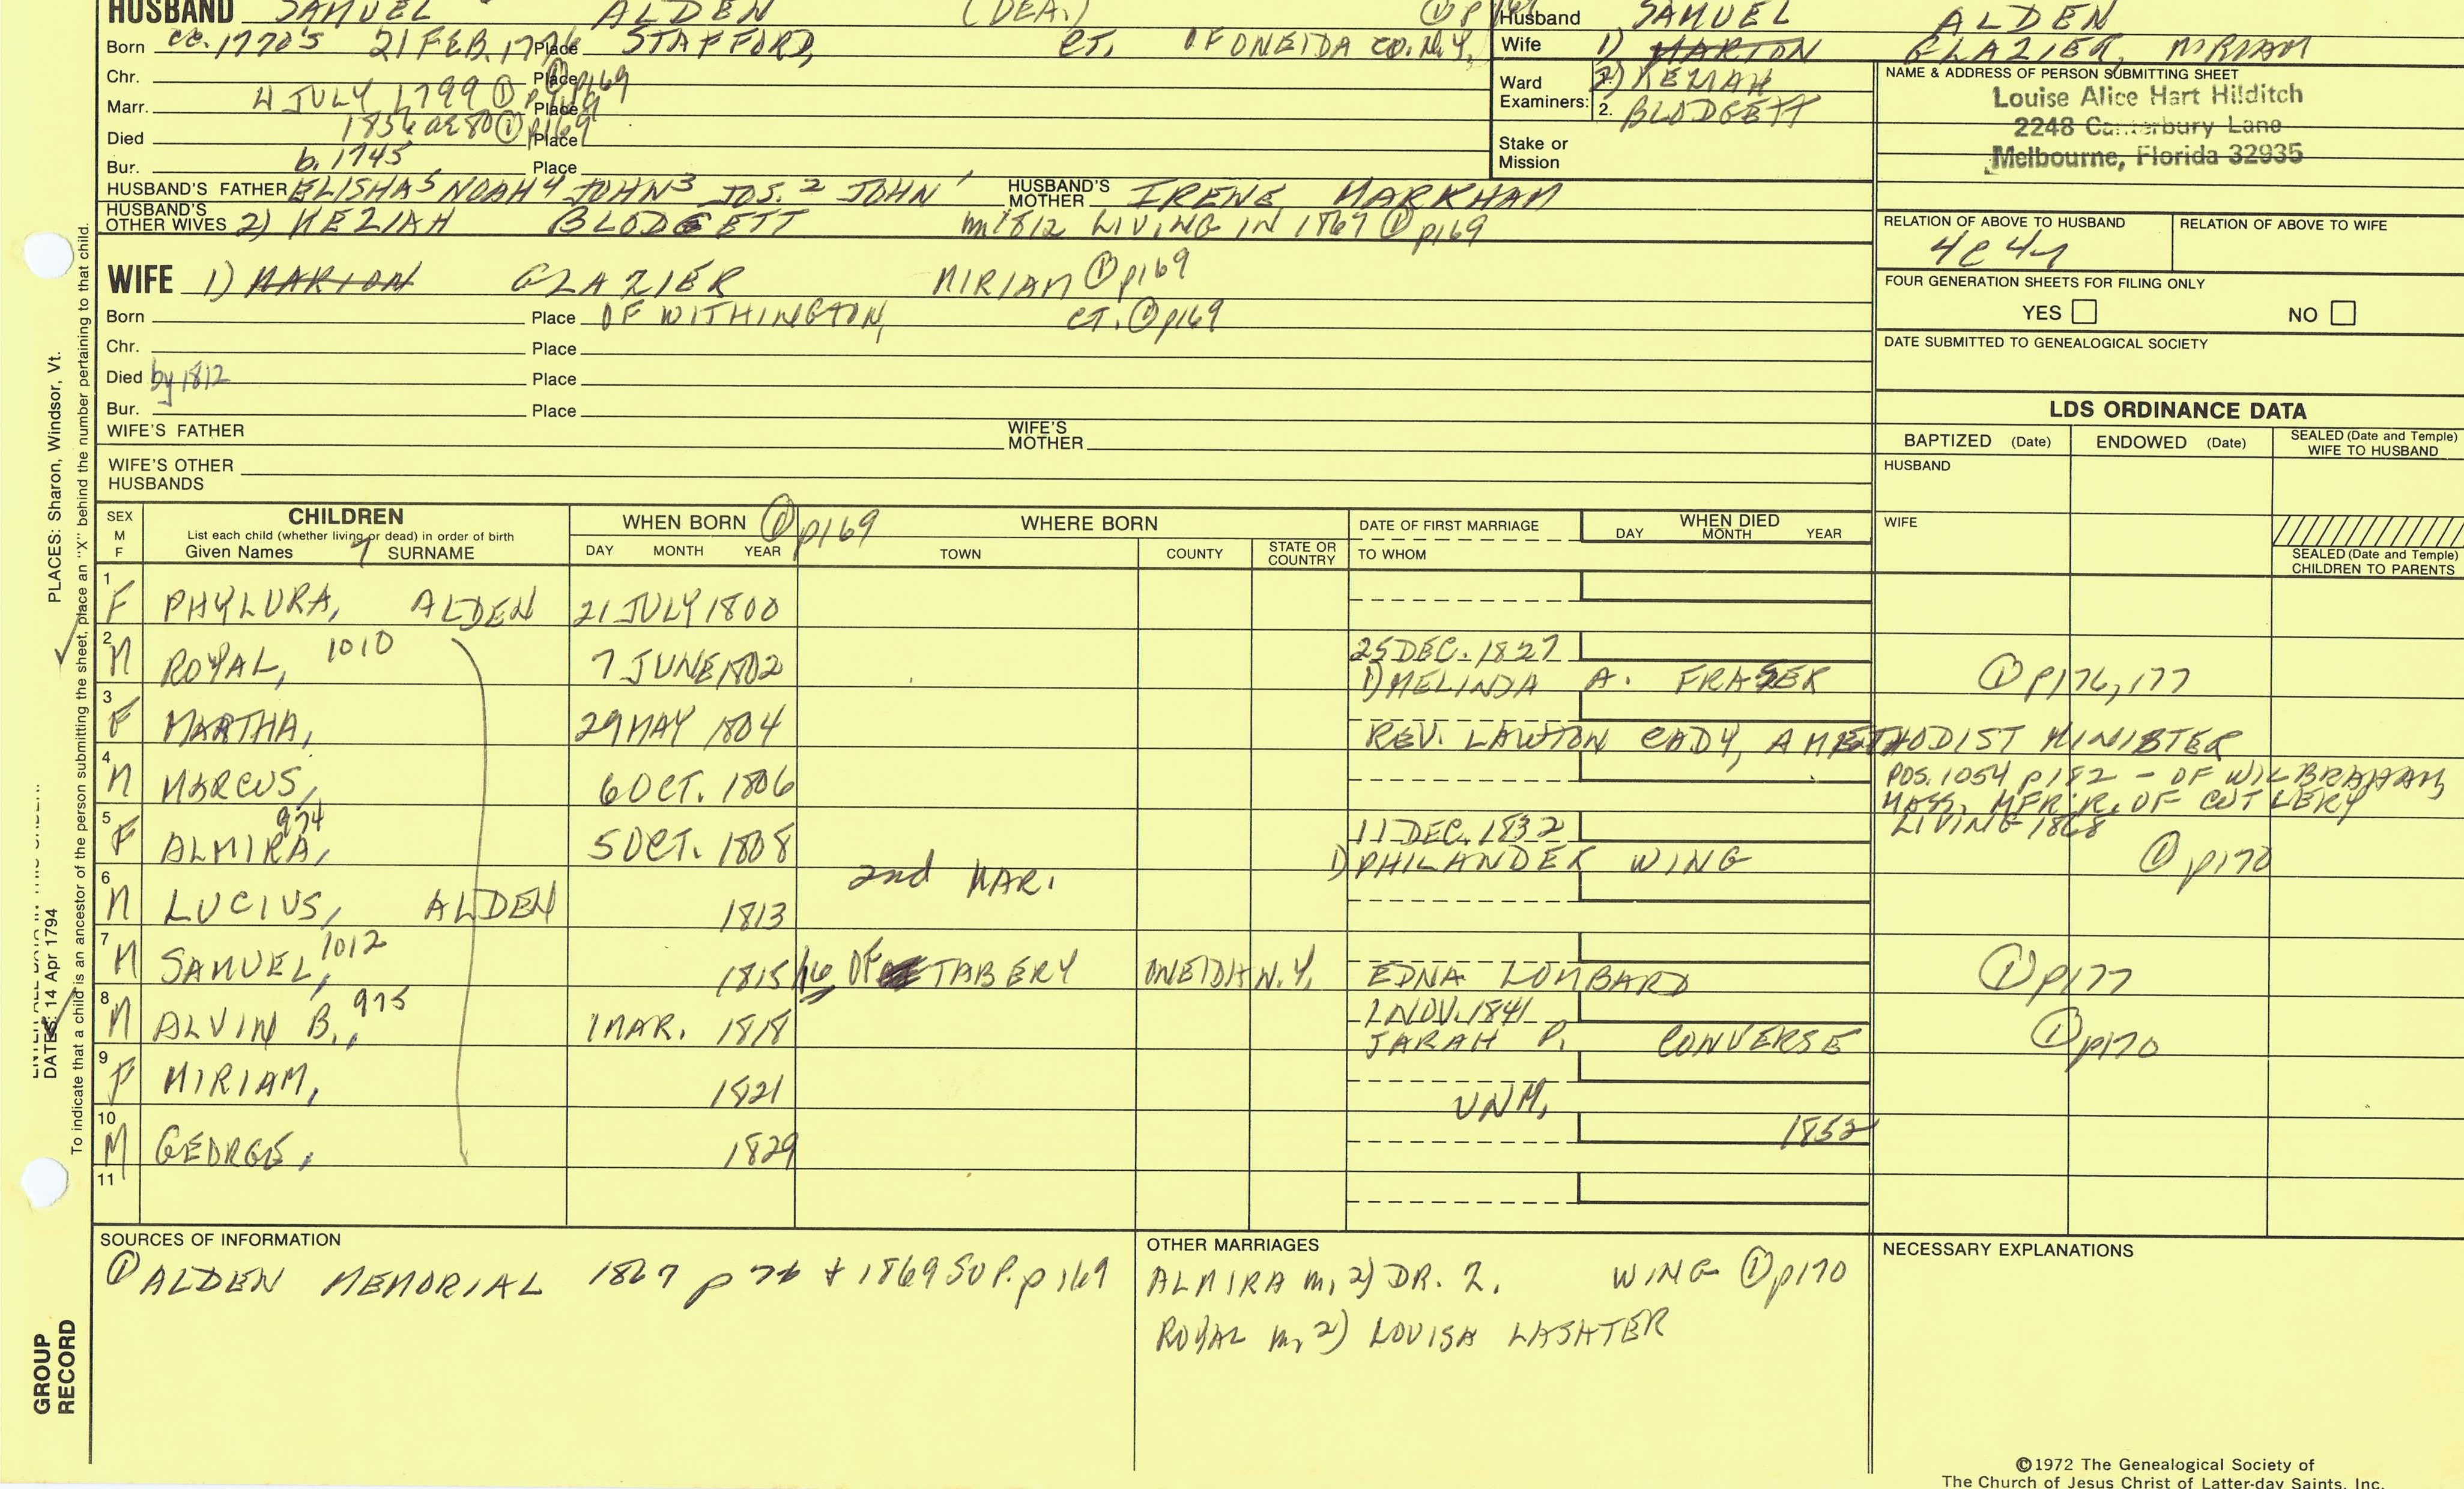 HUSBAND SAMUEL ALDEN (DEA.)
Born ca. 1770's 21 FEB. 1776 Place STAFFORD, CT. OF ONEIDA CO. N.Y.
Chr. Place
Marr. 4 JULY 1799 ① p169 Place
Died 1856 ae 80 ① p169 Place
Bur. Place
b. 1745
HUSBAND'S FATHER ELISHA5 NOAH4 JOHN3 JOS.2 JOHN1 HUSBAND'S MOTHER IRENE MARKHAM
HUSBAND'S OTHER WIVES 2) KEZIAH BLODGETT m. 1812 LIVING IN 1867 ① p169
WIFE 1) MARION GLAZIER MIRIAM ① p169
Born Place OF WITHINGTON, CT. ① p169
Chr. Place
Died by 1812 Place
Bur. Place
WIFE'S FATHER WIFE'S MOTHER
WIFE'S OTHER HUSBANDS
Husband SAMUEL ALDEN
Wife 1) MARION GLAZIER, MIRIAM
Ward Examiners: 1. 2) KEZIAH
2. BLODGETT
Stake or Mission
NAME & ADDRESS OF PERSON SUBMITTING SHEET
Louise Alice Hart Hilditch
2248 Canterbury Lane
Melbourne, Florida 32935
RELATION OF ABOVE TO HUSBAND RELATION OF ABOVE TO WIFE
FOUR GENERATION SHEETS FOR FILING ONLY
YES NO
DATE SUBMITTED TO GENEALOGICAL SOCIETY
LDS ORDINANCE DATA
BAPTIZED (Date) ENDOWED (Date) SEALED (Date and Temple) WIFE TO HUSBAND
HUSBAND
WIFE
SEALED (Date and Temple) CHILDREN TO PARENTS
SEX M F CHILDREN
List each child (whether living or dead) in order of birth
Given Names SURNAME
WHEN BORN ① p169
DAY MONTH YEAR
WHERE BORN
TOWN COUNTY STATE OR COUNTRY
DATE OF FIRST MARRIAGE
TO WHOM
WHEN DIED
DAY MONTH YEAR
1 F PHYLURA, ALDEN 21 JULY 1800
2 M ROYAL, 1010 7 JUNE 1802 25 DEC. 1827 1) MELINDA A. FRASER ① p176, 177
3 F MARTHA, 29 MAY 1804 REV. LAWTON CADY, A METHODIST MINISTER
4 M MARCUS, 6 OCT. 1806 POS. 1054 p182 - OF WILBRAHAM, MASS. MFR'R. OF CUTLERY LIVING 1868
5 F ALMIRA, 974 5 OCT. 1808 11 DEC. 1832 1) PHILANDER WING ① p170
2nd MAR.
6 M LUCIUS, ALDEN 1813
7 M SAMUEL, 1012 1815/16 OF TABERY ONEIDA N.Y. EDNA LOMBARD ① p177
8 M ALVIN B., 975 1 MAR. 1818 1 NOV. 1841 SARAH P. CONVERSE ① p170
9 F MIRIAM, 1821 UNM.
10 M GEORGE, 1829 1852
11
SOURCES OF INFORMATION
① ALDEN MEMORIAL 1867 p & 1869 SUP. p 169
OTHER MARRIAGES
ALMIRA m. 2) DR. Z. WING ① p170
ROYAL m. 2) LOUISA LASHTER
NECESSARY EXPLANATIONS
©1972 The Genealogical Society of
The Church of Jesus Christ of Latter-day Saints, Inc.
PLACES: Sharon, Windsor, Vt.
DATES: 14 Apr 1794
To indicate that a child is an ancestor of the person submitting the sheet, place an "X" behind the number pertaining to that child.
GROUP
RECORD